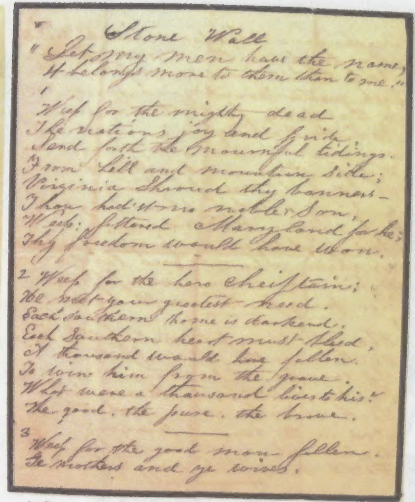 "
Stone Wall
"Let my men have the name,
It belongs more to them than to me."
1
Weep for the mighty dead
The nations joy and pride
Send forth the mournful tidings.
From hill and mountain side;
Virginia Shroud thy banners-
Thou hadst no nobler Son,
Weep; fettered Maryland for he;
Thy freedom would have won.
2 Weep for the hero Cheiftain;
He met your greatest need.
Each Southern home is darkend;
Each Southern heart must bleed,
A thousand would have fallen.
To win him from the grave.
What were a thousand lives to his?
The good. the pure. the brave.
3
Weep for the good man fallen.
Ye mothers and ye wives.